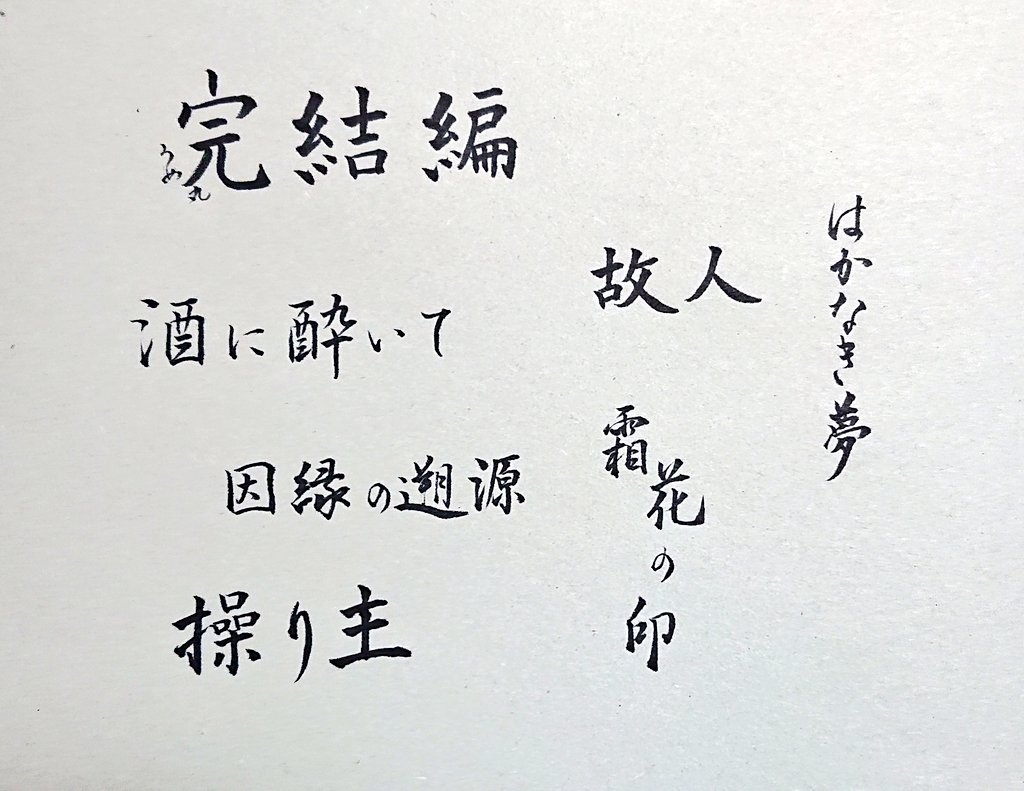 完結編
うめ丸
酒に酔いて
因縁の遡源
操り主
故人
霜花の印
はかなき夢